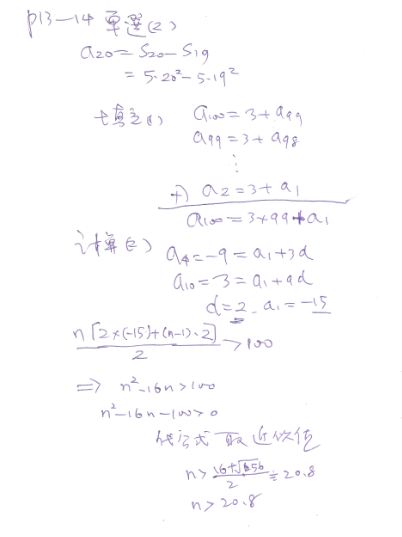 p13-14 單選(2)
a20 = S20 - S19
= 5·20² - 5·19²
填充(1) a100 = 3 + a99
a99 = 3 + a98
⋮
+) a2 = 3 + a1
a100 = 3×99 + a1
計算(2) a4 = -9 = a1 + 3d
a10 = 3 = a1 + 9d
d = 2, a1 = -15
n[2×(-15)+(n-1)·2]/2 > 100
⇒ n² - 16n > 100
n² - 16n - 100 > 0
公式 取近似值
n > (16+√656)/2 ≒ 20.8
n > 20.8